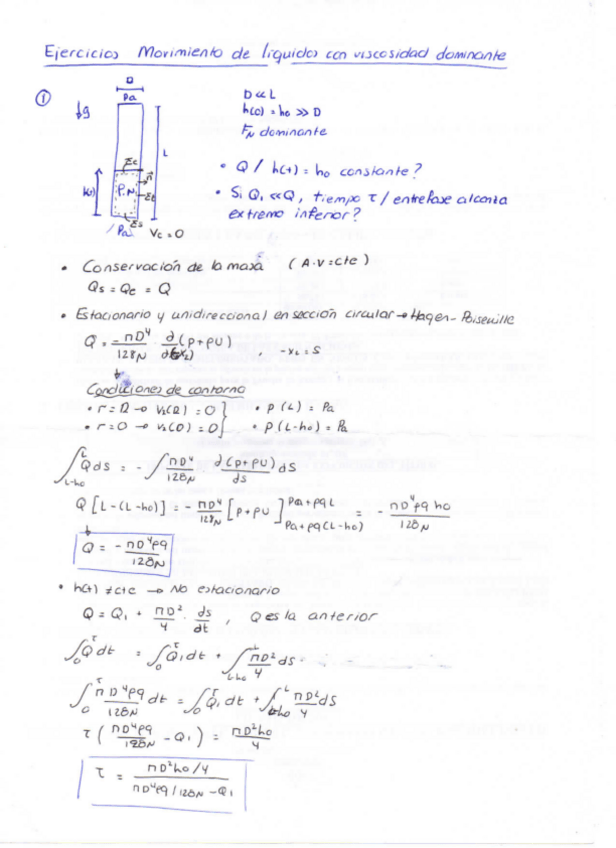 Ejercicios Movimiento de líquidos con viscosidad dominante
①
D
Pa
↓g
L
h(t)
Σc
P.N.
n
Σt
Σs
Pa
Vc = 0
D << L
h(0) = ho >> D
Fμ dominante
• Q / h(t) = ho constante?
• Si Q₁ << Q, tiempo τ / entrefase alcanza
extremo inferior?
• Conservación de la masa (A·v = cte)
Qs = Qe = Q
• Estacionario y unidireccional en sección circular → Hagen-Poiseuille
Q = -πD⁴/128μ ∂(p+ρU)/∂(-x₂) , -x₂ = s
↓
Condiciones de contorno
• r = R → v₂(R) = 0 } • p(L) = Pa
• r = 0 → v₂(0) = 0 } • p(L-ho) = Pa
∫_{L-ho}^{L} Q ds = -∫ πD⁴/128μ ∂(p+ρU)/ds ds
Q [L-(L-ho)] = -πD⁴/128μ [p+ρU]_{Pa+ρg(L-ho)}^{Pa+ρgL} = -πD⁴ρg ho/128μ
↓
Q = -πD⁴ρg/128μ
• h(t) ≠ cte → No estacionario
Q = Q₁ + πD²/4 · ds/dt , Q es la anterior
∫₀^τ Q dt = ∫₀^τ Q₁ dt + ∫_{L-ho}^{L} πD²/4 ds
∫₀^τ πD⁴ρg/128μ dt = ∫₀^τ Q₁ dt + ∫_{L-ho}^{L} πD²/4 ds
τ (πD⁴ρg/128μ - Q₁) = πD²ho/4
τ = (πD²ho/4)/(πD⁴ρg/128μ - Q₁)